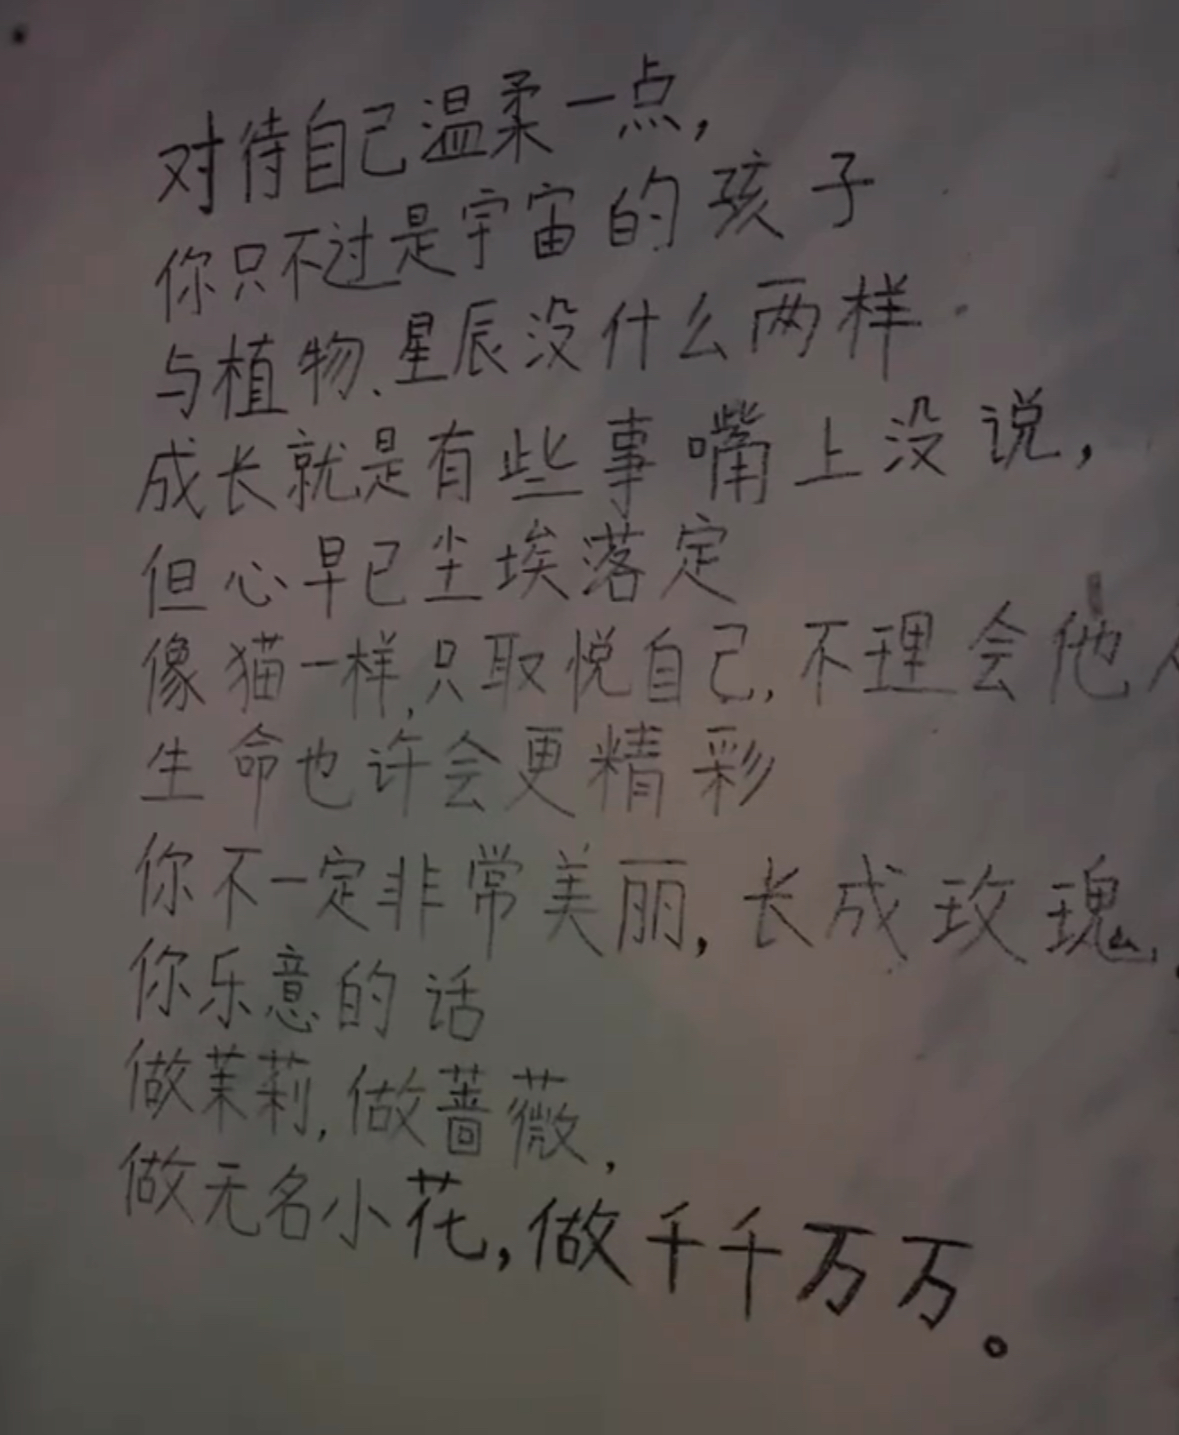 对待自己温柔一点,
你只不过是宇宙的孩子
与植物、星辰没什么两样
成长就是有些事嘴上没说,
但心早已尘埃落定
像猫一样,只取悦自己,不理会他人
生命也许会更精彩
你不一定非常美丽,长成玫瑰,
你乐意的话
做茉莉,做蔷薇,
做无名小花,做千千万万。